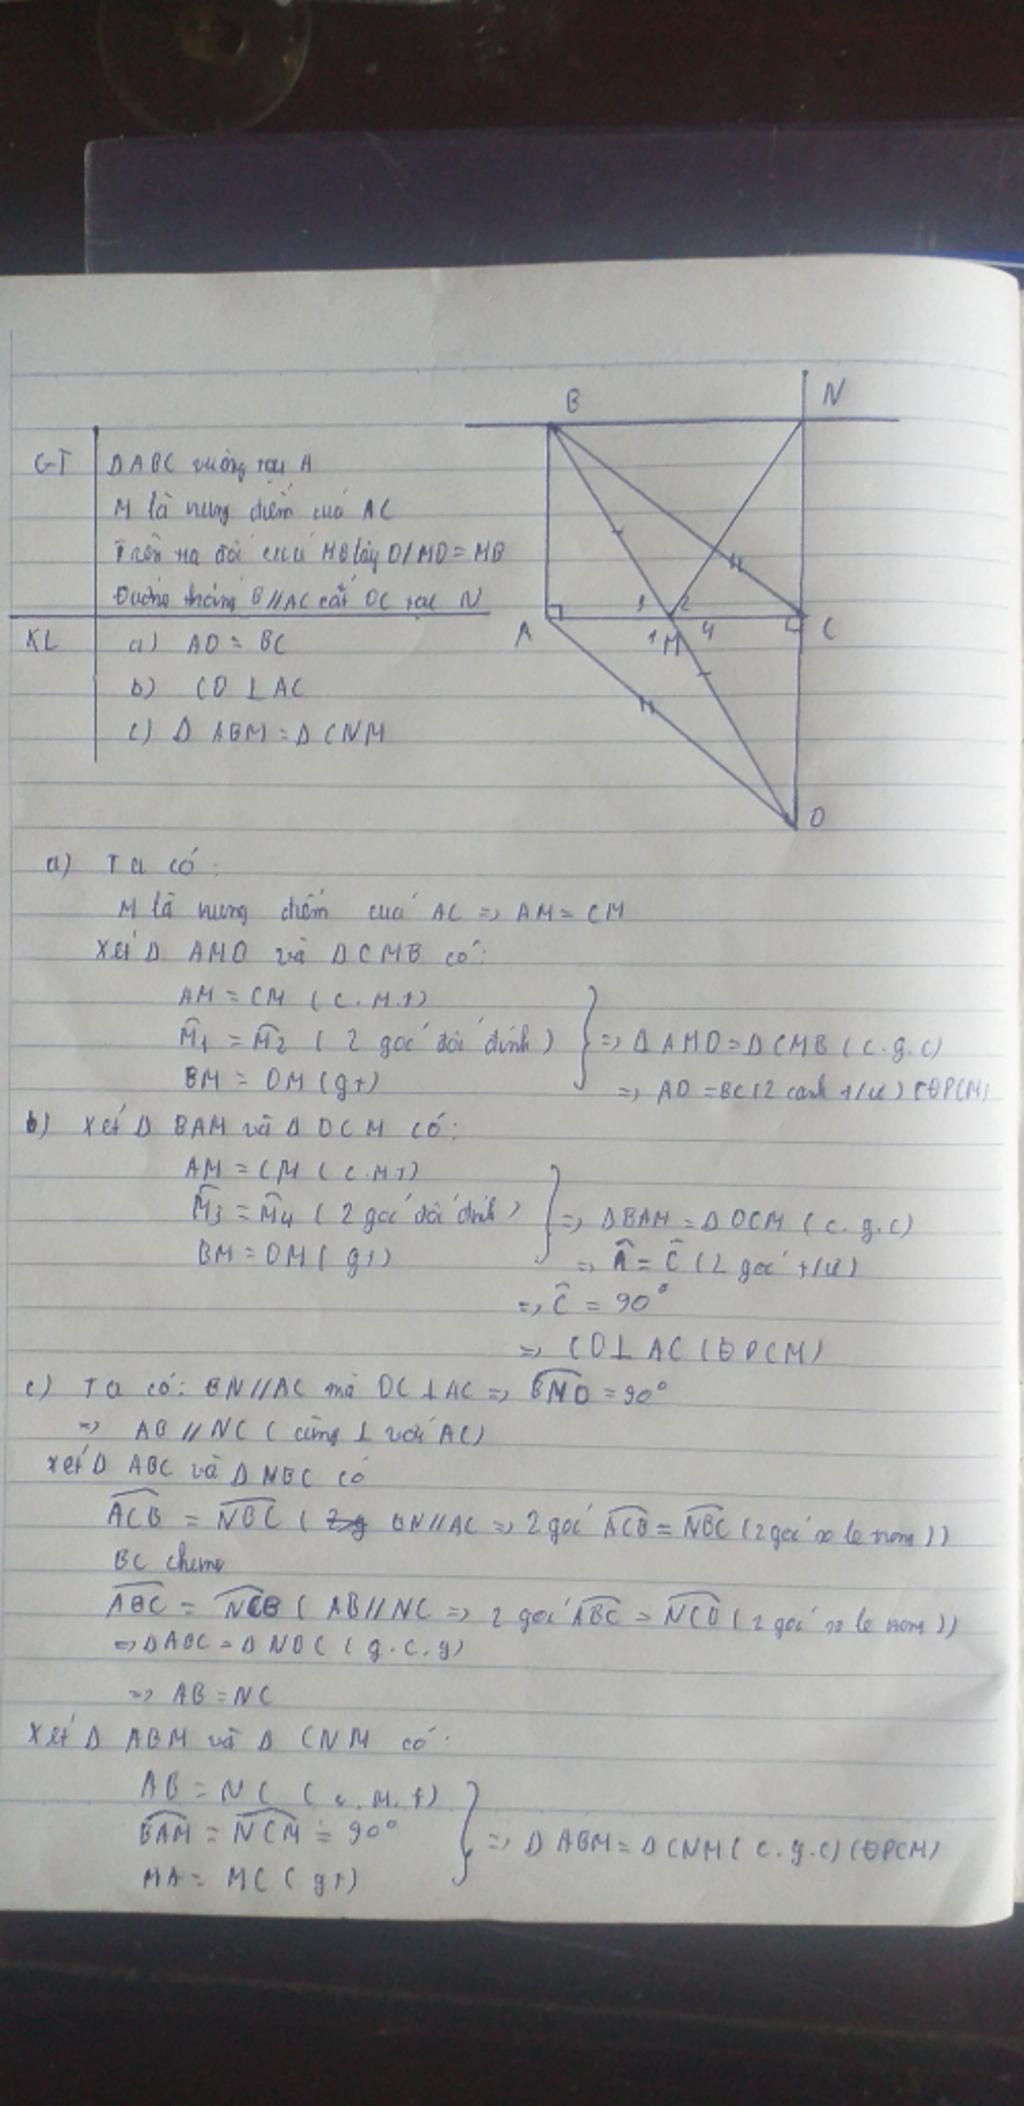 B N
GT ΔABC vuông tại A
M là trung điểm của AC
Trên tia đối của MB lấy D/MD = MB
Đường thẳng B//AC cắt DC tại N
A 3 2 1 M 4 C
KL a) AD = BC
b) CD ⊥ AC
c) Δ ABM = Δ CNM
D
a) Ta có:
M là trung điểm của AC => AM = CM
Xét Δ AMD và ΔCMB có:
AM = CM (c.m.t)
M̂1 = M̂2 (2 góc đối đỉnh) } => ΔAMD = ΔCMB (c.g.c)
BM = DM (gt) => AD = BC (2 cạnh t/ứ) (ĐPCM)
b) Xét Δ BAM và Δ DCM có:
AM = CM (c.m.t)
M̂3 = M̂4 (2 góc đối đỉnh) } => ΔBAM = ΔDCM (c.g.c)
BM = DM (gt) => Â = Ĉ (2 góc t/ứ)
=> Ĉ = 90°
=> CD ⊥ AC (ĐPCM)
c) Ta có: BN//AC mà DC ⊥ AC => BND = 90°
=> AB // NC (cùng ⊥ với AC)
Xét Δ ABC và Δ NBC có
ACB = NBC ( BN//AC => 2 góc ACB = NBC (2 góc so le trong))
BC chung
ABC = NCB (AB//NC => 2 góc ABC = NCB (2 góc so le trong))
=> ΔABC = ΔNBC (g.c.g)
=> AB = NC
Xét Δ ABM và Δ CNM có:
AB = NC (c.m.t)
BAM = NCM = 90° } => Δ ABM = ΔCNM (c.g.c) (ĐPCM)
MA = MC (gt)